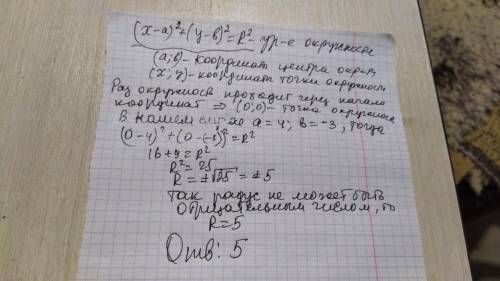 (x-a)²+(y-b)²=R² - ур-е окружности
(a;b)- координат центра окр-ти
(x;y)-координат точки окружности
Раз окружность проходит через начало
координат ⇒ (0;0)- точка окружности
В нашем случае a=4; b=-3, тогда
(0-4)²+(0-(-3))²=R²
16+9=R²
R²=25
R=±√25=±5
Так радиус не может быть
отрицательным числом, то
R=5
Отв: 5